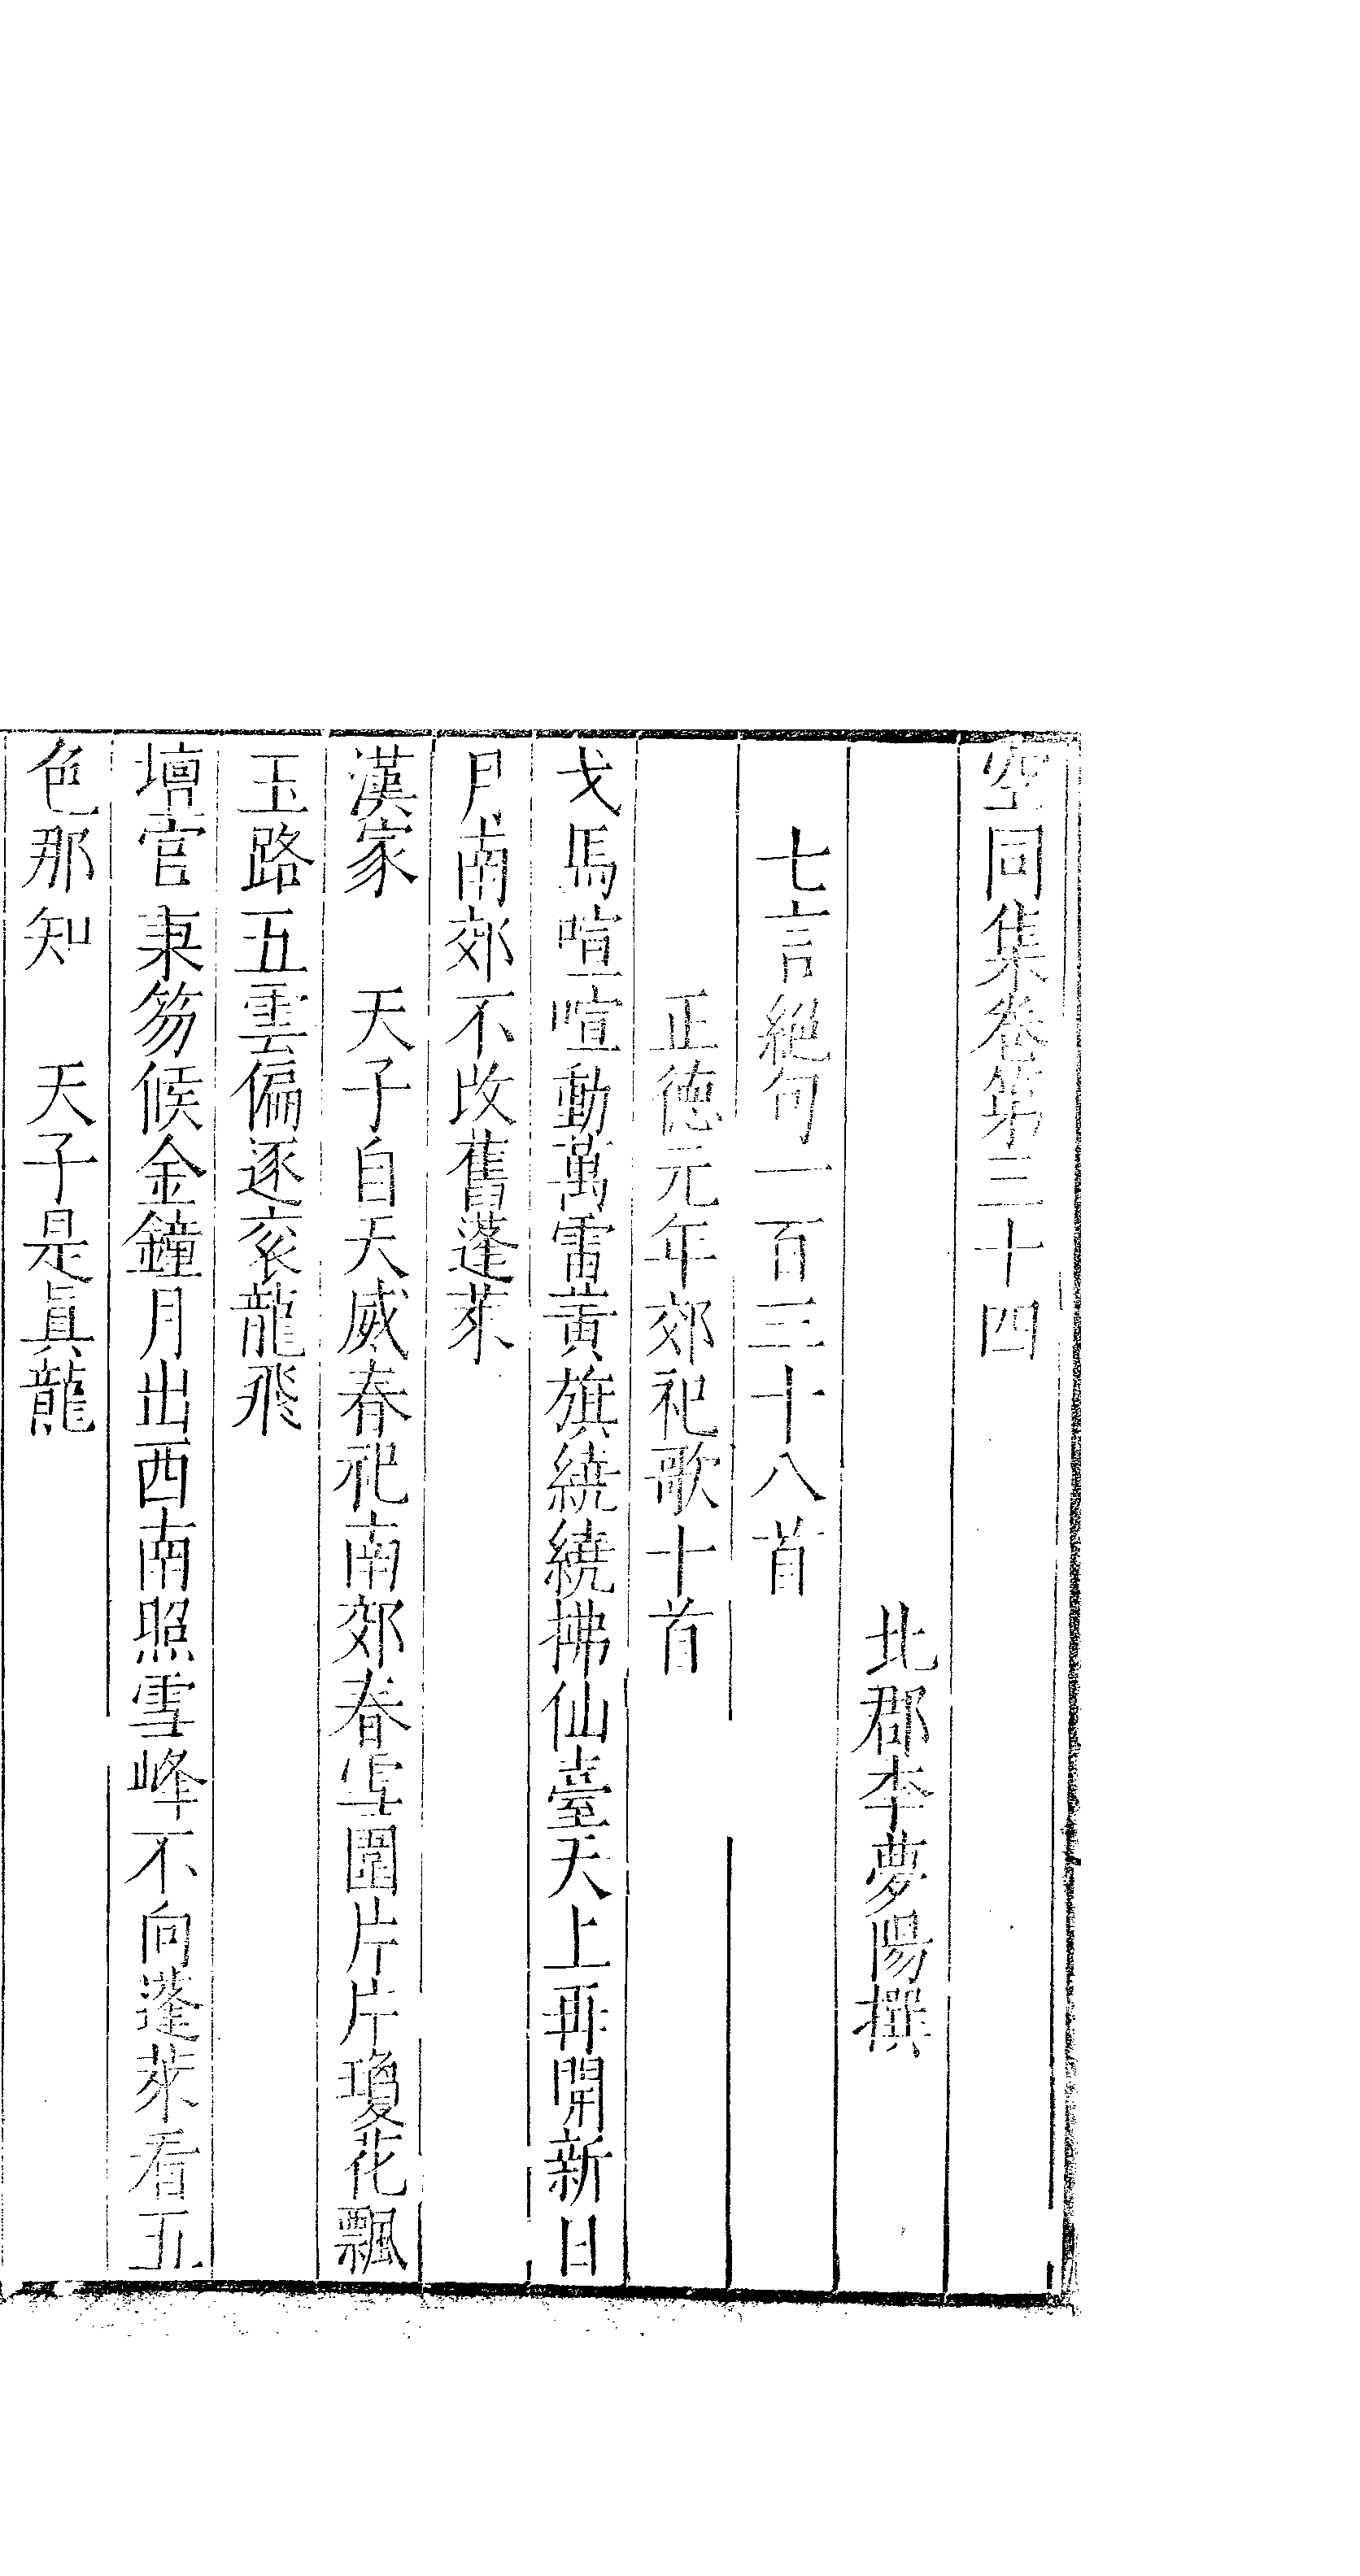 空同集卷第三十四
北郡李夢陽撰
七言絕句一百三十八首
正德元年郊祀歌十首
戈馬喧喧動萬雷黃旗繞繞拂仙臺天上再開新日
月南郊不改舊蓬萊
漢家　天子自天威春祀南郊春雪圍片片瓊花飄
玉路五雲偏逐袞龍飛
壇官秉笏候金鐘月出西南照雪峰不向蓬萊看五
色那知　天子是眞龍